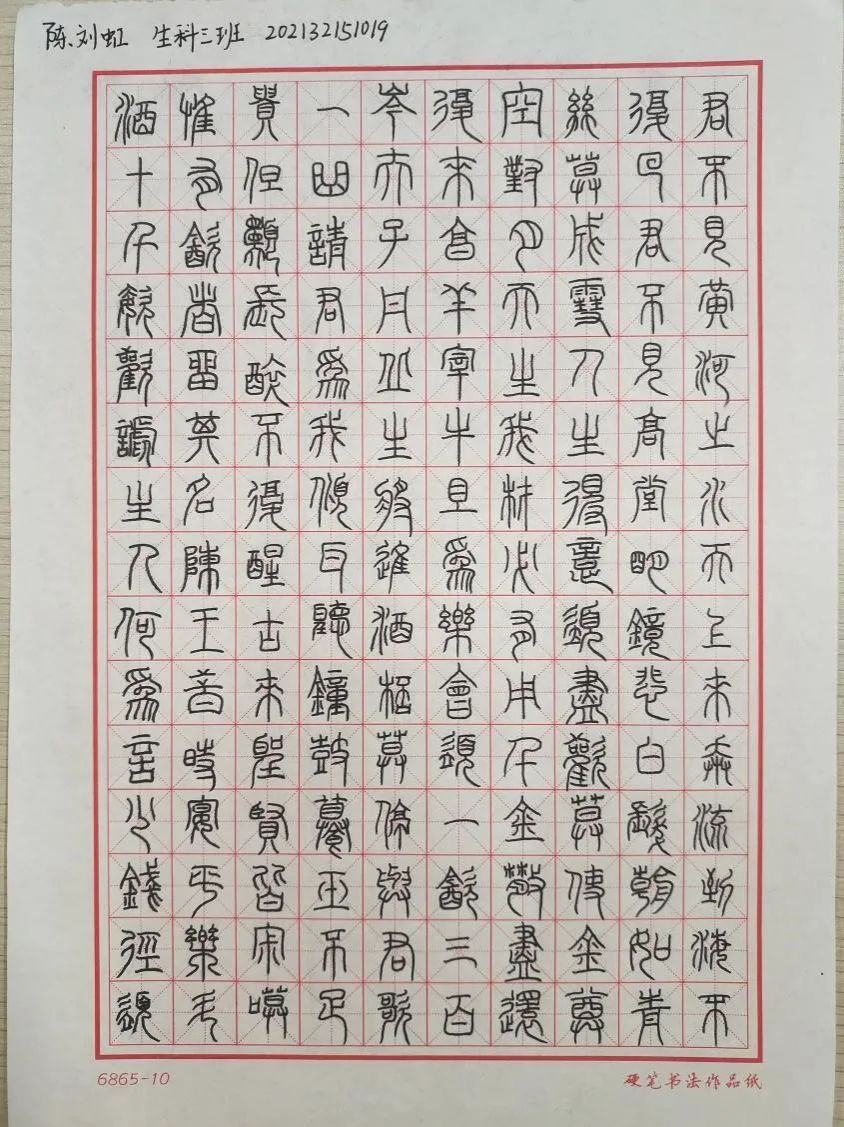 陈刘虹 生科三班 202132151019
君不見黃河之水天上來奔流到海不
復回君不見高堂明鏡悲白髮朝如青
絲莫成雪人生得意須盡歡莫使金尊
空對月天生我材必有用千金散盡還
復來烹羊宰牛且為樂會須一飲三百
岑夫子丹丘生將進酒杯莫停與君歌
一曲請君為我傾耳聽鐘鼓饌玉不足
貴但願長醉不復醒古來聖賢皆寂嗼
惟有飲者留其名陳王昔時宴平樂斗
酒十千恣歡謔主人何為言少錢徑須
6865-10
硬笔书法作品纸